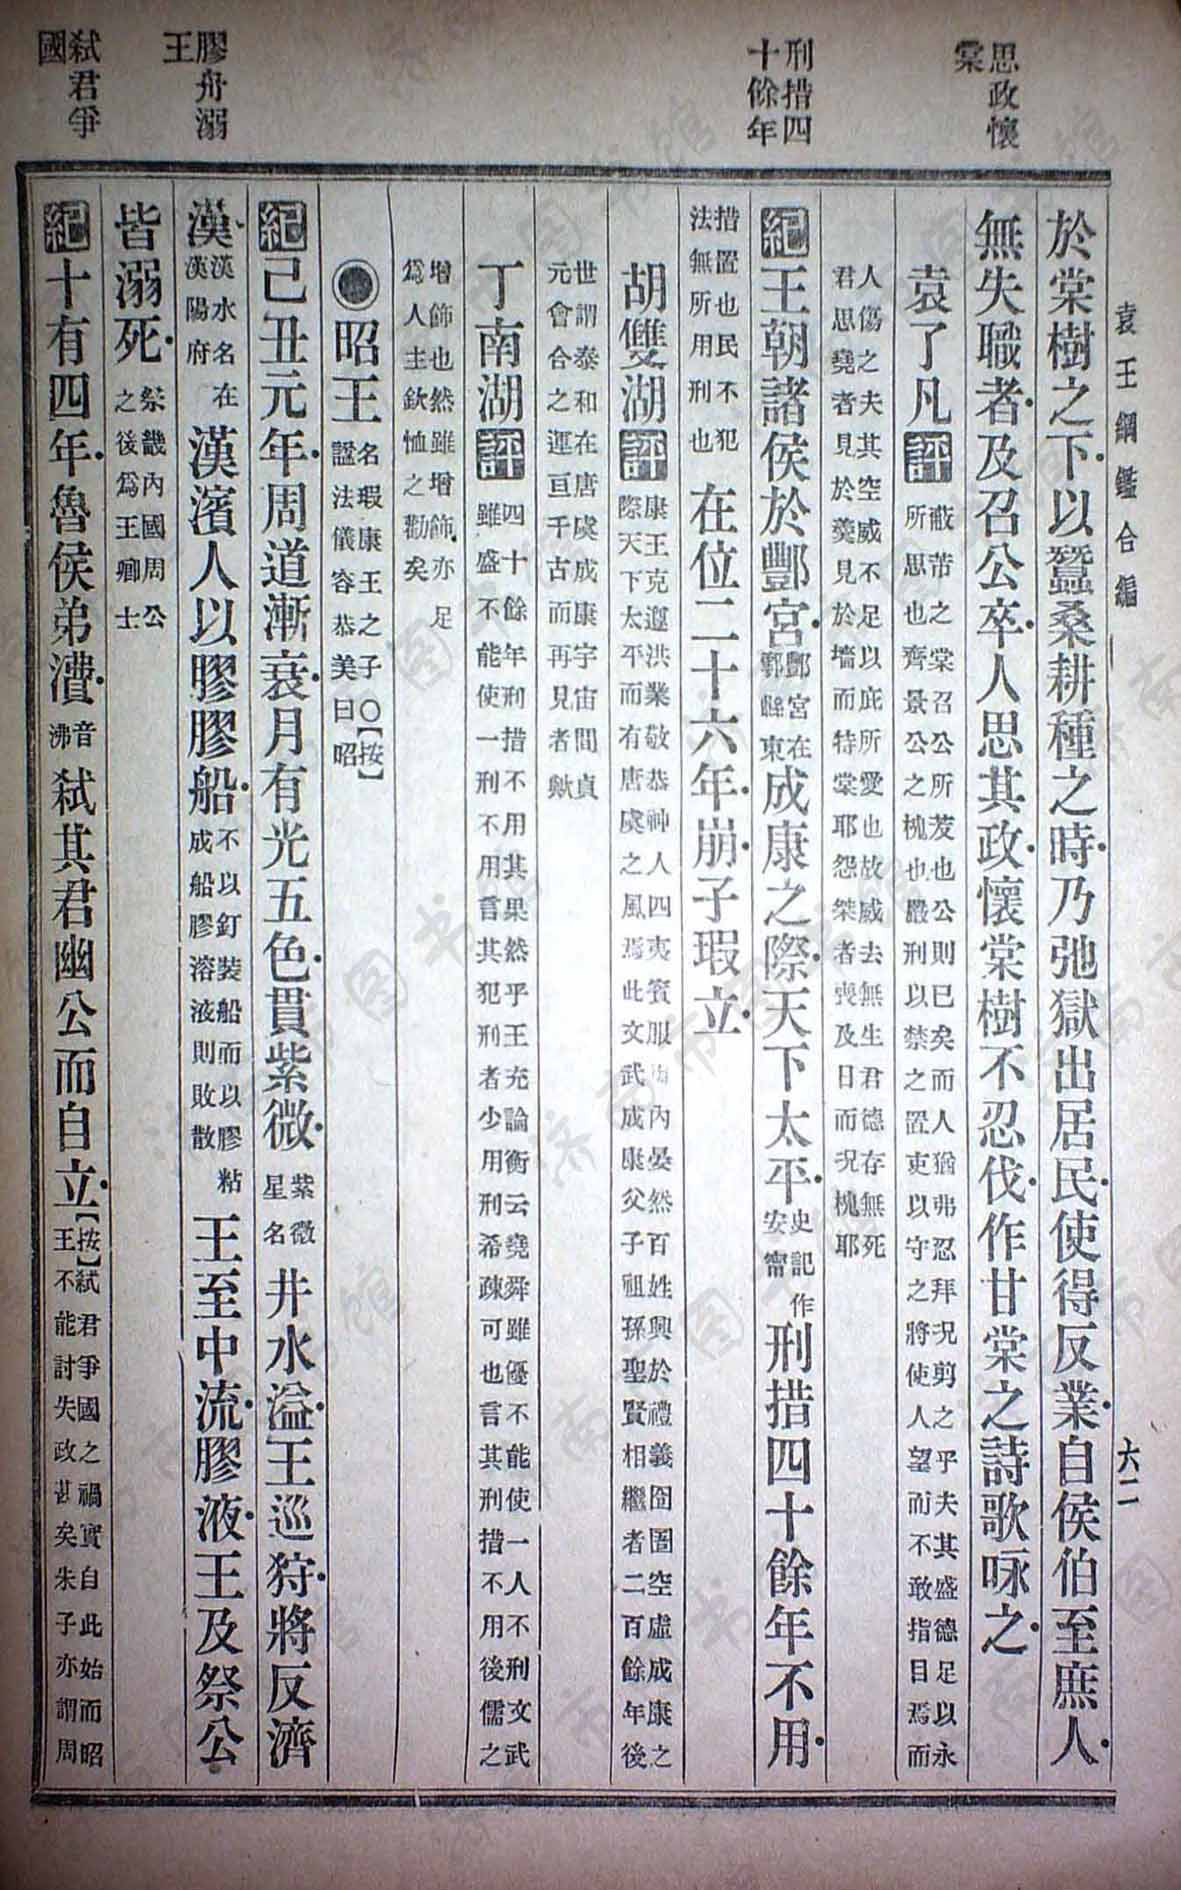 袁王綱鑑合編
六二
思政懷棠
刑措四十餘年
膠舟溺王
弒君爭國
於棠樹之下以蠶桑耕種之時乃弛獄出居民使得反業自侯伯至庶人
無失職者及召公卒人思其政懷棠樹不忍伐作甘棠之詩歌咏之
袁了凡評蔽芾之棠召公所茇也公則已矣而人猶弗忍拜況剪之乎夫其盛德足以永
所思也齊景公之槐也嚴刑以禁之置吏以守之將使人望而不敢指目焉而
人傷之夫其空威不足以庇所愛也故威去無生君德存無死
君思堯者見於羹見於墻而特棠耶怨桀者喪及日而況槐耶
紀王朝諸侯於酆宮酆宮在鄠縣東成康之際天下太平史記作安甯刑措四十餘年不用
措置也民不犯法無所用刑也在位二十六年崩子瑕立
胡雙湖評康王克遵洪業敬恭神人四夷賓服海內晏然百姓興於禮義囹圄空虛成康之
際天下太平而有唐虞之風焉此文武成康父子祖孫聖賢相繼者二百餘年後
世謂泰和在唐虞成康宇宙間貞
元會合之運亘千古而再見者歟
丁南湖評四十餘年刑措不用其果然乎王充論衡云堯舜雖優不能使一人不刑文武
雖盛不能使一刑不用言其犯刑者少用刑希疎可也言其刑措不用後儒之
增飾也然雖增飾亦足
爲人主欽恤之勸矣
●昭王名瑕康王之子○【按】諡法儀容恭美曰昭
紀己丑元年周道漸衰月有光五色貫紫微紫微星名井水溢王巡狩將反濟
漢漢水名在漢陽府漢濱人以膠膠船不以釘裝船而以膠粘成船膠溶液則敗散王至中流膠液王及祭公
皆溺死祭畿內國周公之後爲王卿士
紀十有四年魯侯弟㵒音沸弒其君幽公而自立【按】弒君爭國之禍實自此始而昭王不能討失政甚矣朱子亦謂周